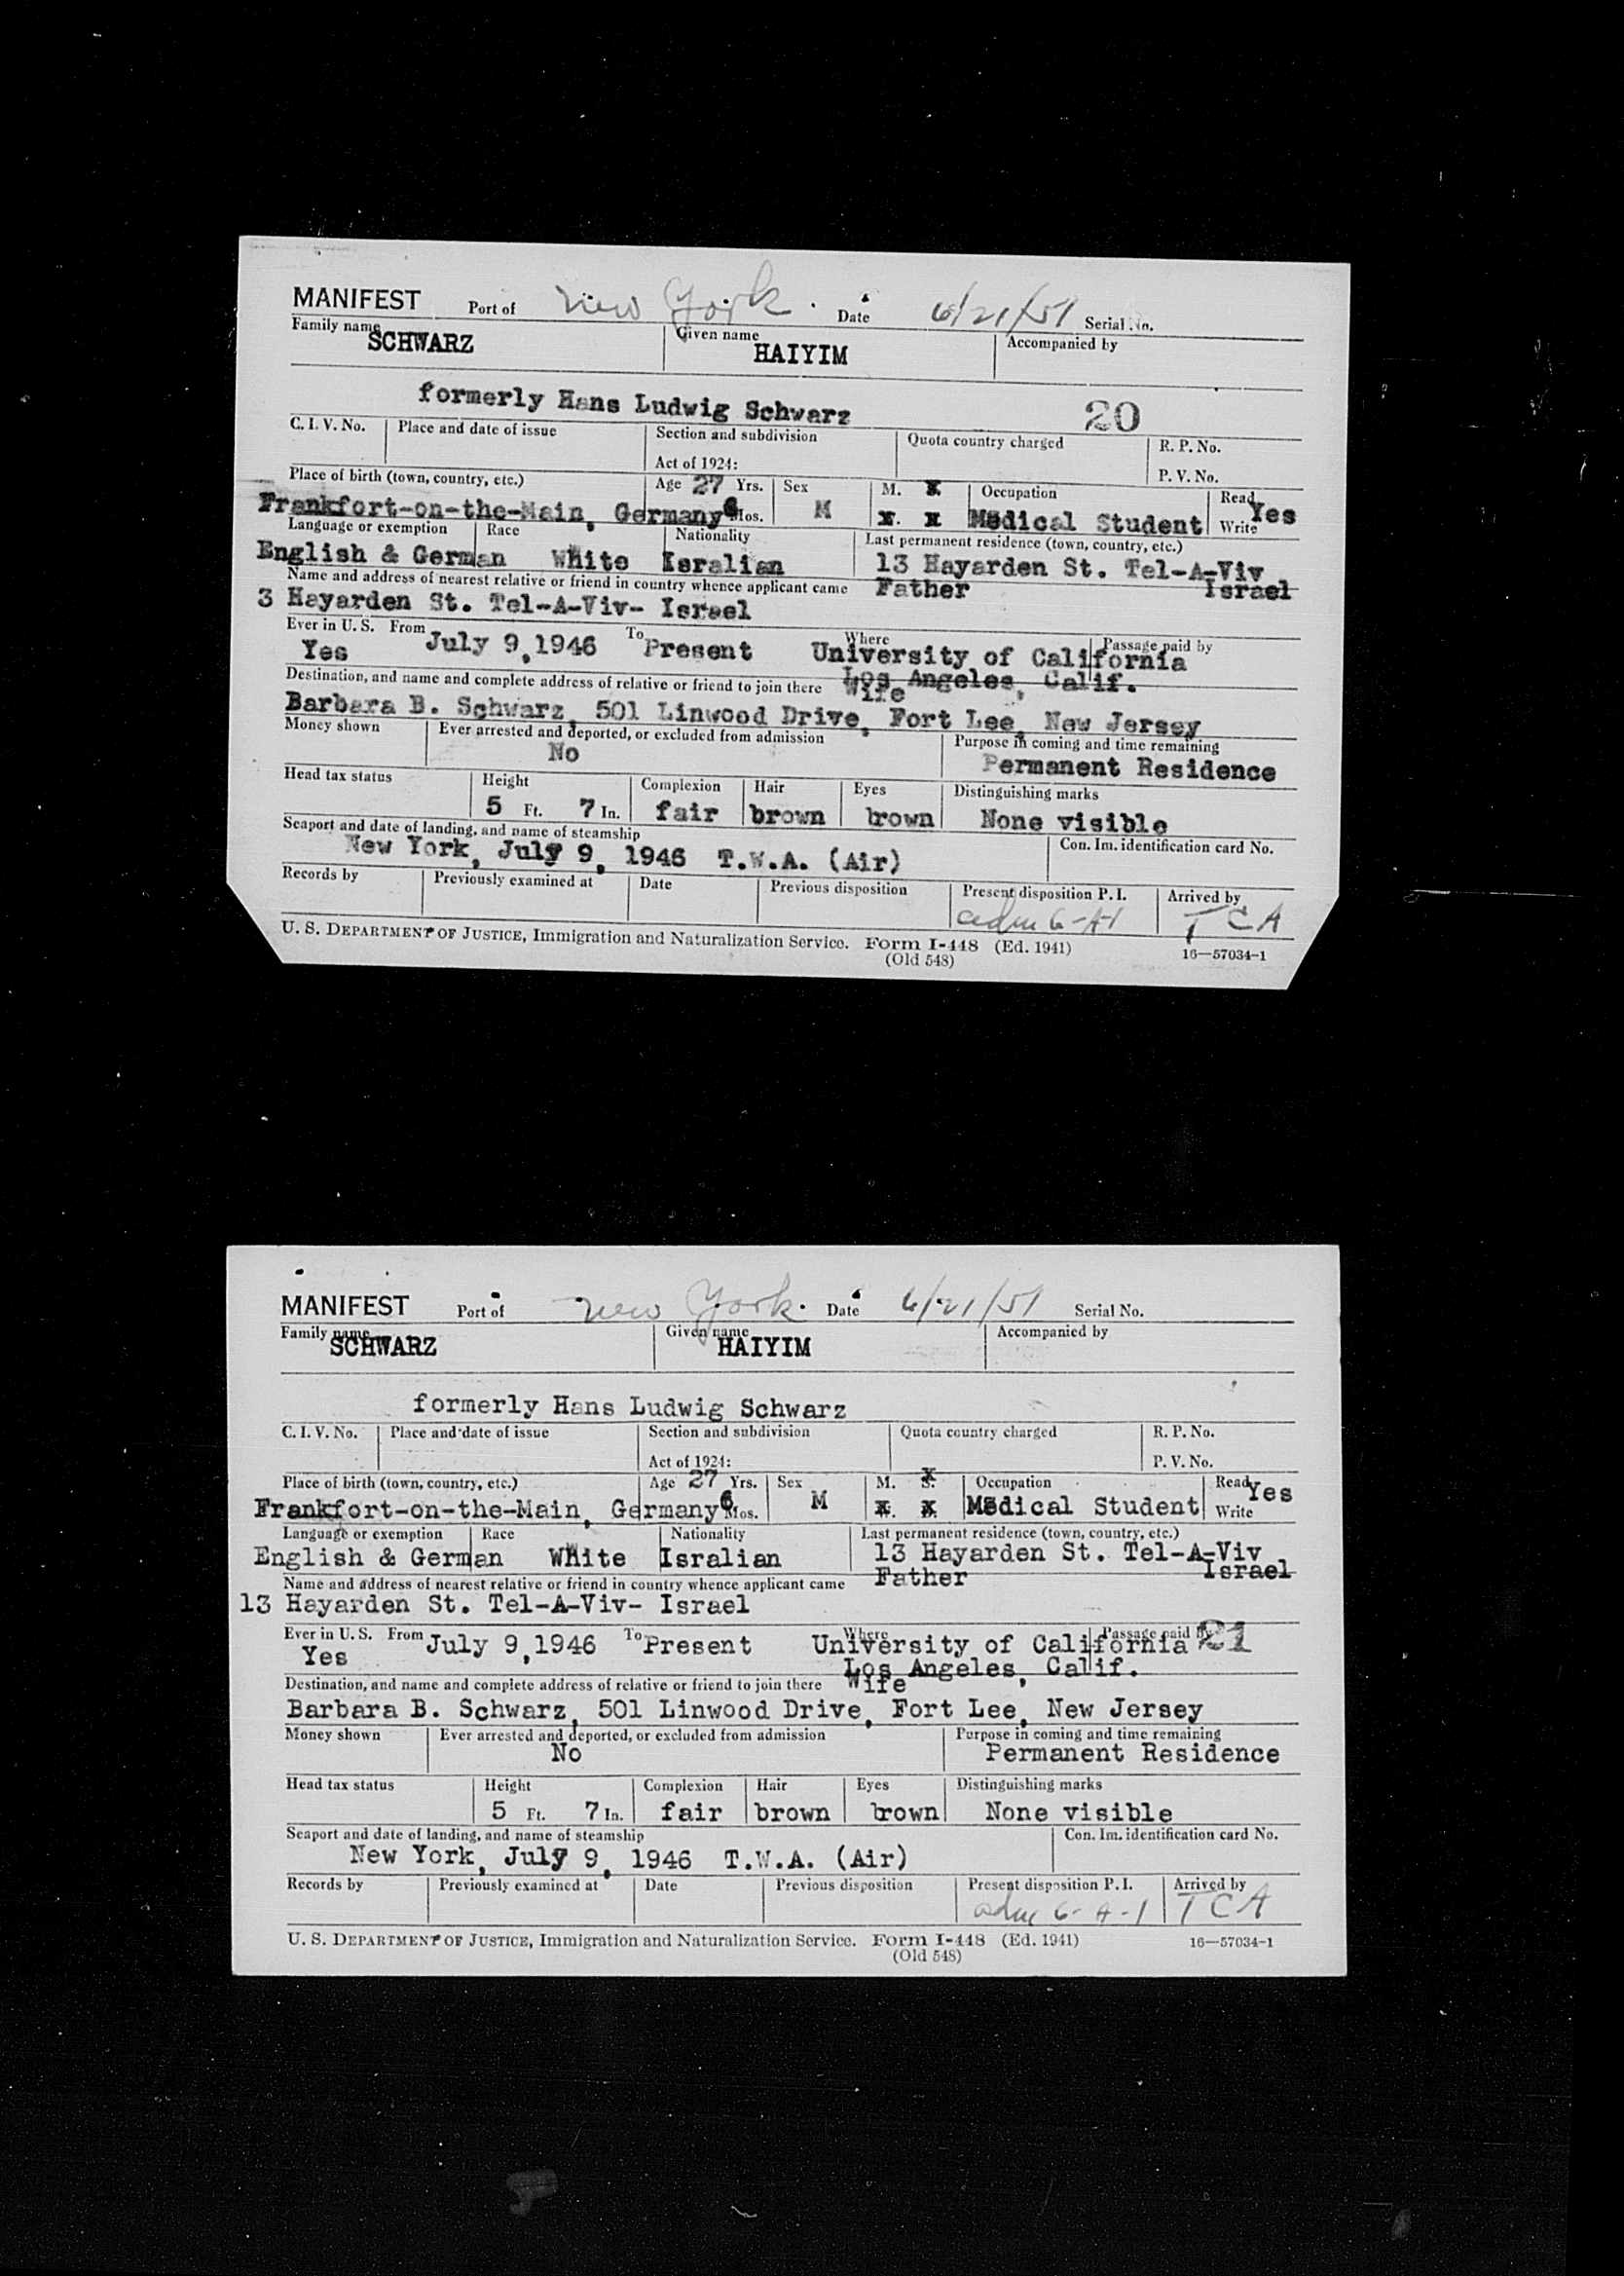 MANIFEST Port of New York. Date 6/21/51 Serial No.
Family name SCHWARZ Given name HAIYIM Accompanied by
formerly Hans Ludwig Schwarz 20
C. I. V. No. Place and date of issue Section and subdivision Quota country charged R. P. No.
Act of 1924: P. V. No.
Place of birth (town, country, etc.) Age 27 Yrs. Sex M. x Occupation Read
Frankfort-on-the-Main, Germany 6 Mos. M x. x Medical Student Write Yes
Language or exemption Race Nationality Last permanent residence (town, country, etc.)
English & German White Isralian 13 Hayarden St. Tel-A-Viv
Name and address of nearest relative or friend in country whence applicant came Father Israel
3 Hayarden St. Tel-A-Viv- Israel
Ever in U. S. From To Where Passage paid by
Yes July 9,1946 Present University of California
Los Angeles, Calif.
Destination, and name and complete address of relative or friend to join there Wife
Barbara B. Schwarz, 501 Linwood Drive, Fort Lee, New Jersey
Money shown Ever arrested and deported, or excluded from admission Purpose in coming and time remaining
No Permanent Residence
Head tax status Height Complexion Hair Eyes Distinguishing marks
5 Ft. 7 In. fair brown brown None visible
Seaport and date of landing, and name of steamship Con. Im. identification card No.
New York, July 9, 1946 T.W.A. (Air)
Records by Previously examined at Date Previous disposition Present disposition P. I. Arrived by
adm 6-A-1 TCA
U. S. DEPARTMENT OF JUSTICE, Immigration and Naturalization Service. Form I-448 (Ed. 1941) 16—57034-1
(Old 548)
MANIFEST Port of New York. Date 6/21/51 Serial No.
Family name SCHWARZ Given name HAIYIM Accompanied by
formerly Hans Ludwig Schwarz
C. I. V. No. Place and date of issue Section and subdivision Quota country charged R. P. No.
Act of 1924: P. V. No.
Place of birth (town, country, etc.) Age 27 Yrs. Sex M. S. x Occupation Read
Frankfort-on-the-Main, Germany 6 Mos. M x x Medical Student Write Yes
Language or exemption Race Nationality Last permanent residence (town, country, etc.)
English & German White Isralian 13 Hayarden St. Tel-A-Viv
Name and address of nearest relative or friend in country whence applicant came Father Israel
13 Hayarden St. Tel-A-Viv- Israel
Ever in U. S. From To Where Passage paid by 21
Yes July 9,1946 Present University of California
Los Angeles, Calif.
Destination, and name and complete address of relative or friend to join there Wife
Barbara B. Schwarz, 501 Linwood Drive, Fort Lee, New Jersey
Money shown Ever arrested and deported, or excluded from admission Purpose in coming and time remaining
No Permanent Residence
Head tax status Height Complexion Hair Eyes Distinguishing marks
5 Ft. 7 In. fair brown brown None visible
Seaport and date of landing, and name of steamship Con. Im. identification card No.
New York, July 9, 1946 T.W.A. (Air)
Records by Previously examined at Date Previous disposition Present disposition P. I. Arrived by
adm 6-A-1 TCA
U. S. DEPARTMENT OF JUSTICE, Immigration and Naturalization Service. Form I-448 (Ed. 1941) 16—57034-1
(Old 548)